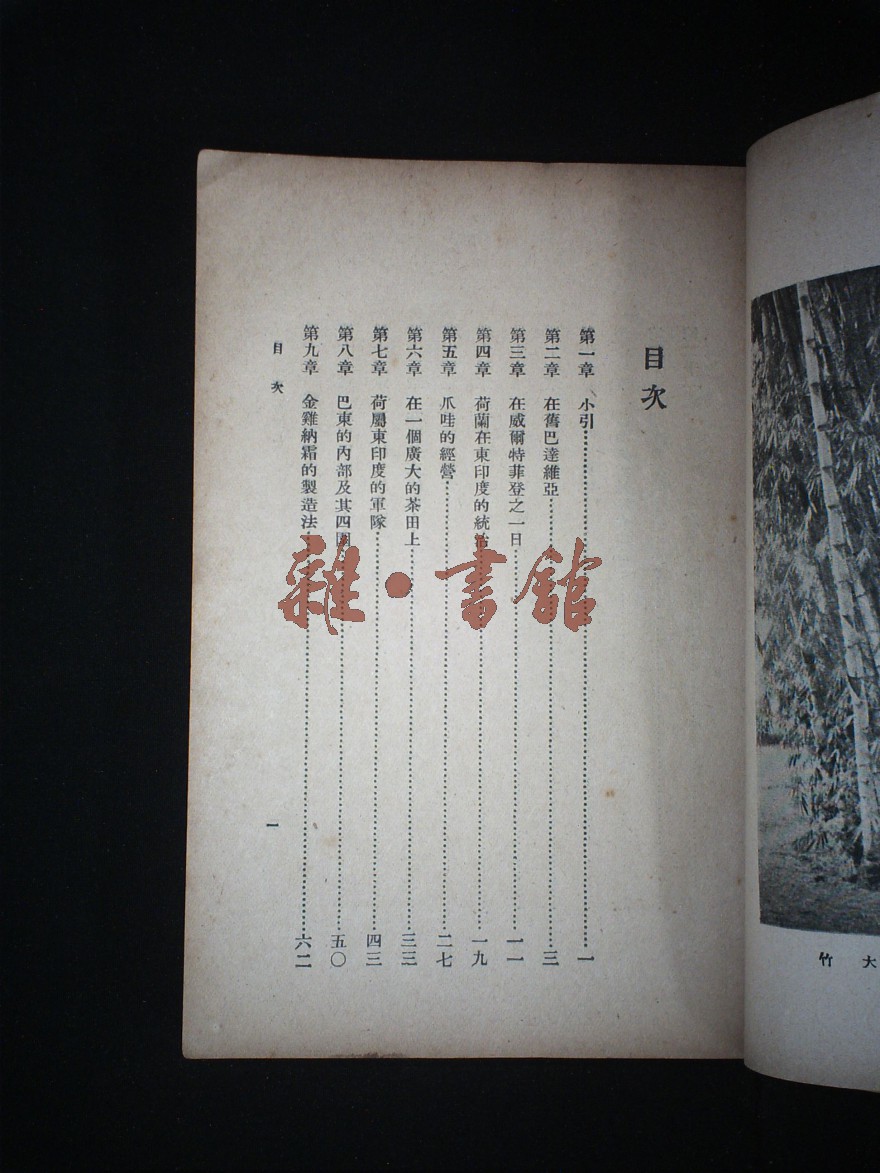 目次
第一章 小引…………一
第二章 在舊巴達維亞…………三
第三章 在威爾特菲登之一日…………一一
第四章 荷蘭在東印度的統治…………一九
第五章 爪哇的經營…………二七
第六章 在一個廣大的茶田上…………三三
第七章 荷屬東印度的軍隊…………四三
第八章 巴東的內部及其四圍…………五〇
第九章 金雞納霜的製造法…………六二
目次
一
大竹
雜·書館